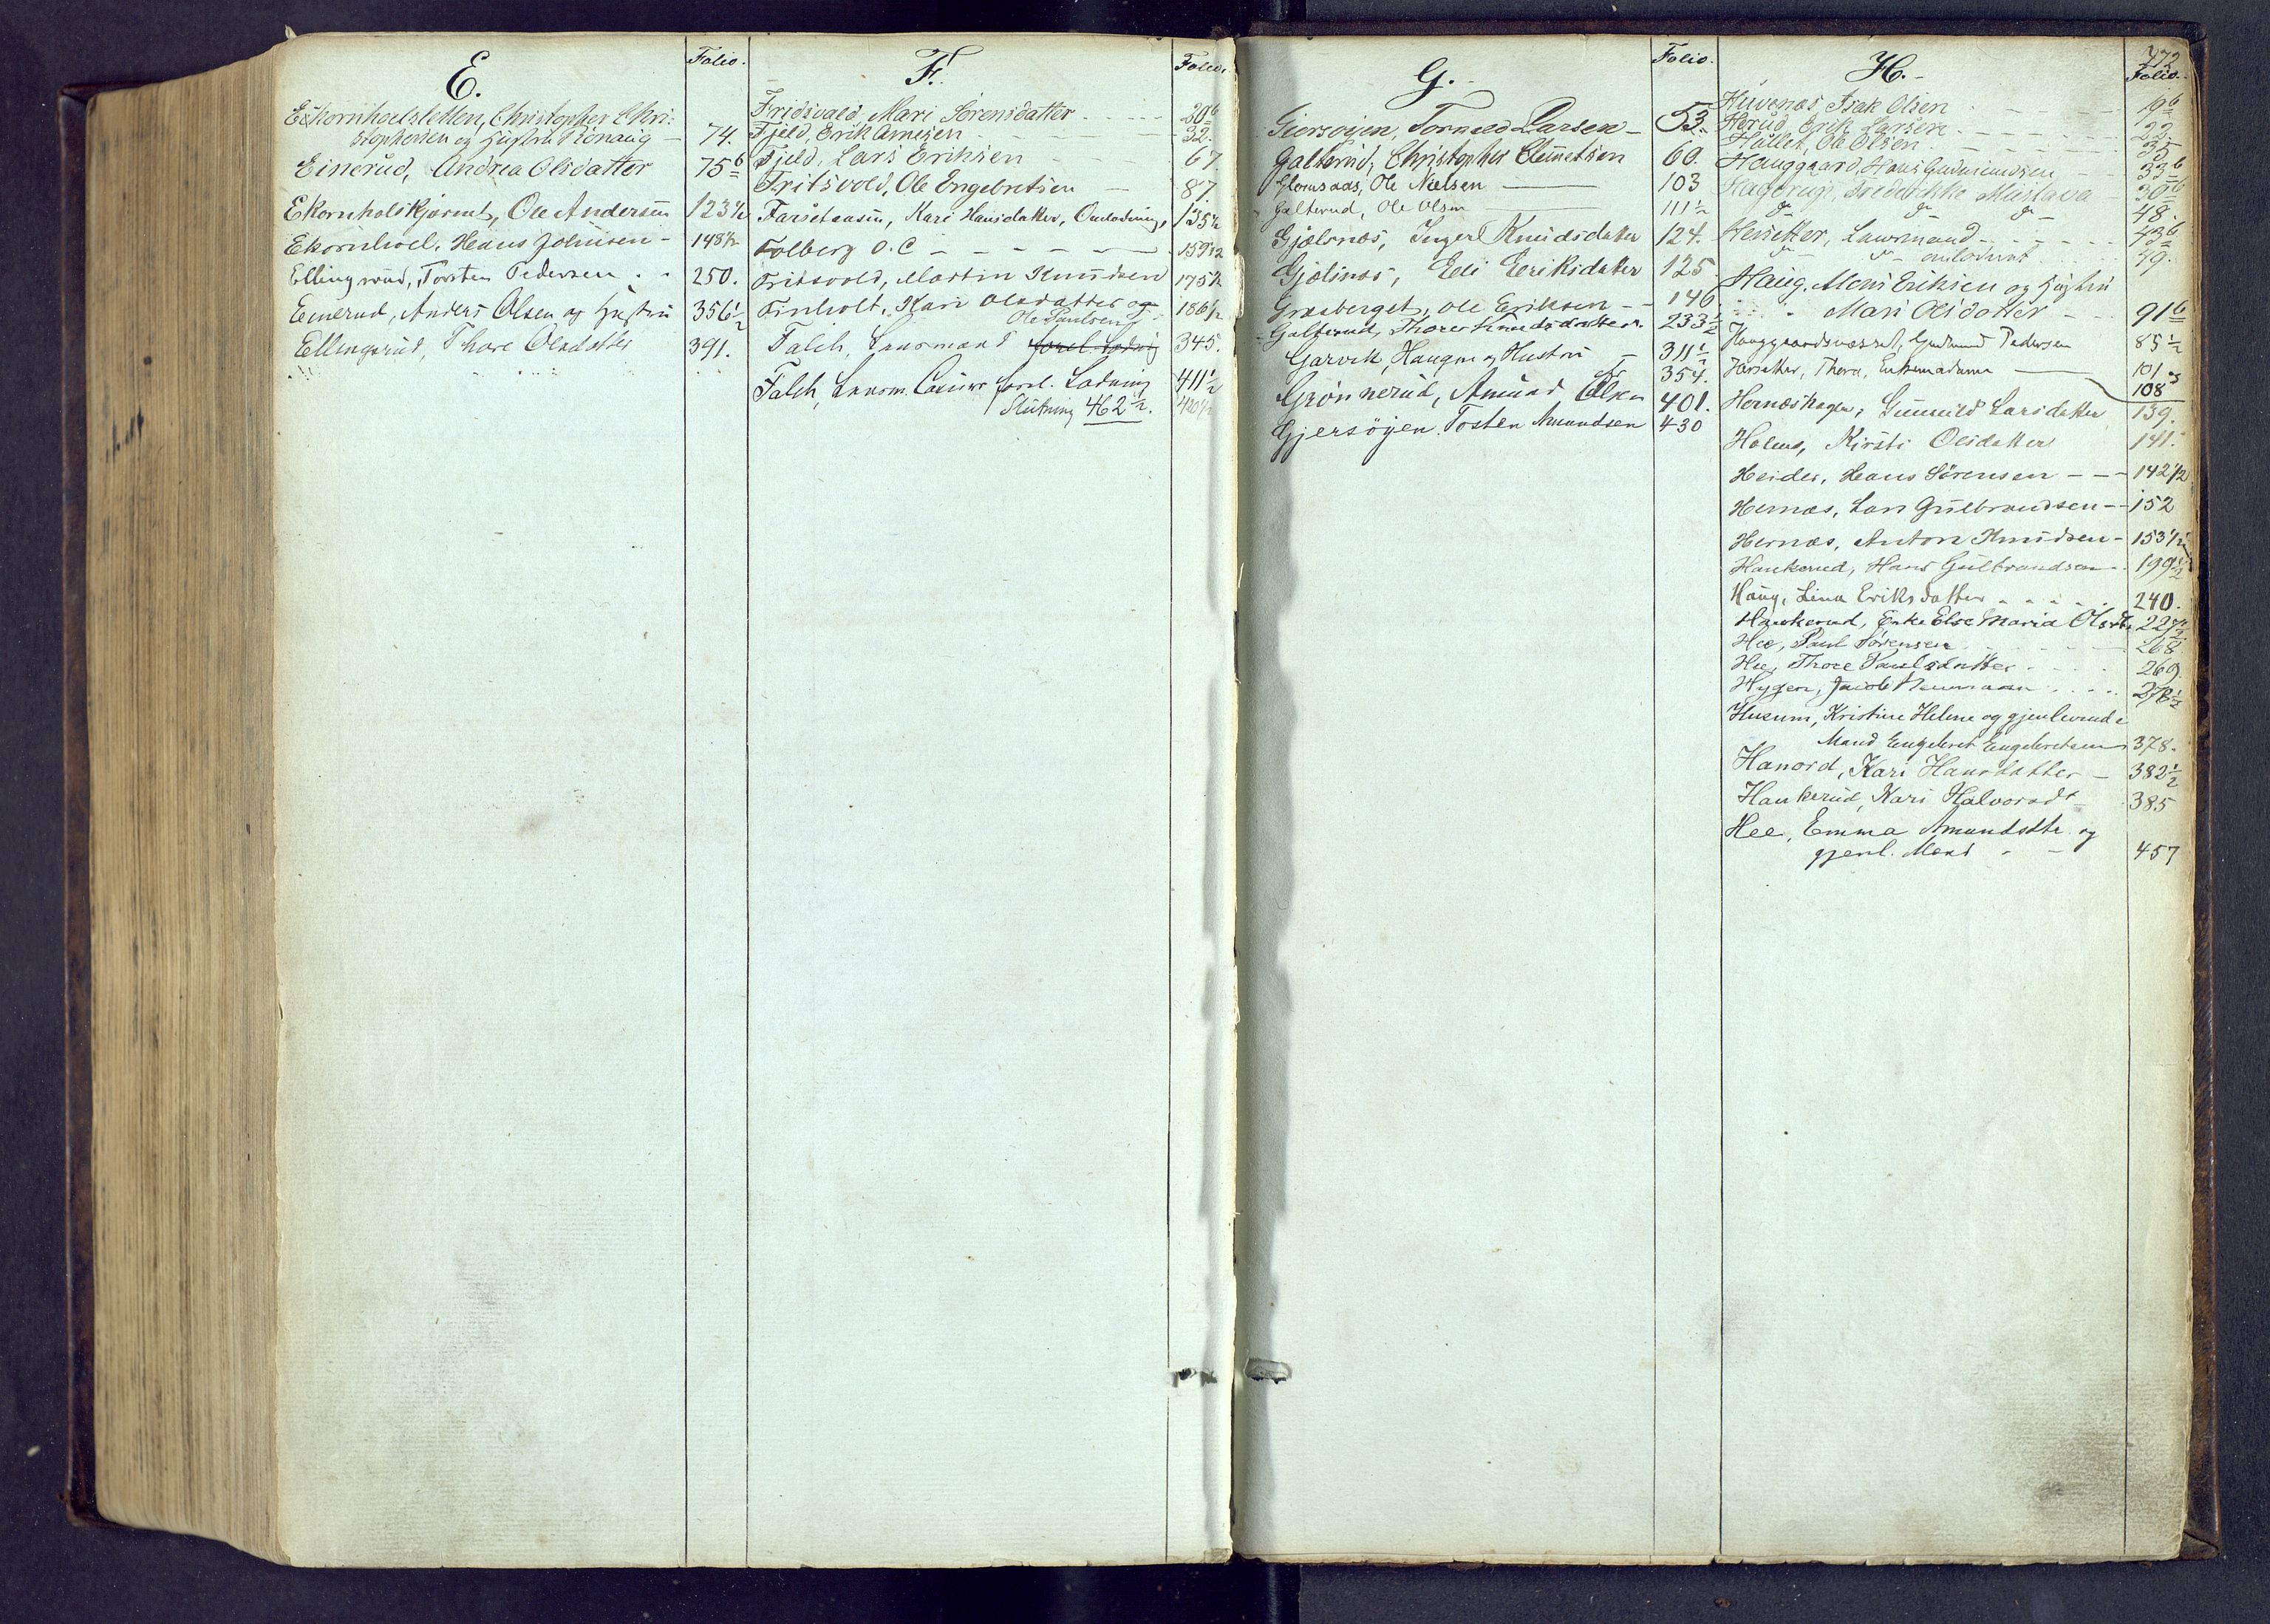 E. Folio.
Ekornholsletten, Christopher Chri-
stophersen og Hustru Rönaug - 74.
Einerud, Andrea Olsdatter 75b
Ekornholskjærnet, Ole Andersen 123½
Ekornhoel, Hans Johnsen - 148½
Ellingsrud, Torsten Pedersen . . 250.
Einerud, Anders Olsen og Hustru 356½
Ellingsrud, Thore Olsdatter 391.
F. Folio.
Fridsvald, Mari Sörensdatter 20b
Fjeld, Erik Arnesen 32.
Fjeld, Lars Eriksen 67.
Fritsvold, Ole Engebretsen 87.
Kari Hansdatter, Omlodning, 135½
Folberg O. C - - - 159½
Fritsvold, Martin Knudsen 175½
Finholt, Kari Olsdatter og
Ole Paulsen F. 186½
Falch, Lensmand forel. Lodning 345.
Falch, Lensm. forel. Lodning 411½
Slutning 462½. 420½
G. Folio.
Giersöyen, Larsen - 53.
Galterud, Christopher Clemetsen 60.
Glomsaas, Ole Nielsen 103
Galterud, Ole Olsen 111½
Gjølsnæs, Inger Knudsdatter 124.
Gjølsnæs, Eli Eriksdatter 125
Græsberget, Ole Eriksen - - 146
Galterud, Thore Knudsdatter 233½
Garvik, Haagen og Hustru - 311½
Grönnerud, Amund Olsen 354.
401.
Gjersöyen. Tosten Amundsen 430
772
H. Folio.
Huvenæs, Isak Olsen 19b
Herud, Erik Larsen 22
Hallet, Ole Olsen 35
Hauggaard, Hans Gudmundsen 33b
Hagerup, Frederikke Mustava 30b
do do do 48.
Henetter, Lensmand 43b
do do omlodnet 59.
Haug, Mons Eriksen og Hustru
Mari Olsdatter 91b
Gudmund Pedersen 85½
Thora, Enkemadame 101 og
108
Hernæshagen, Gunnild Larsdatter 139.
Holene, Kirsti Olsdatter 141.
Heider, Hans Sörensen - - - 142½
Hernæs, Lars Gulbrandsen - - 152
Hernæs, Anton Knudsen - 153½
Haukerud, Hans Gulbrandsen 199½
Haug, Lina Eriksdatter 240.
Haukerud, Enke Else Maria Olsdtr 227½
Hee, Paul Sörensen 268
Hee, Thore Paulsdatter 269
Hygen, Jacob Neumann 278½
Husum, Kristine Helene og gjenlevende
Mand Engebret Engebretsen 378.
Hanord, Kari Hansdatter - 382½
Haukerud, Kari Halvorsdr 385
Hee, Emma Amundsdtr og
gjenl. Mand - - 457